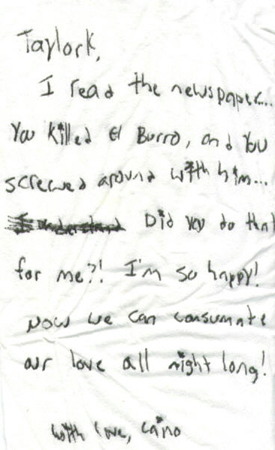 Taylor K,
I read the newspaper...
You killed El Burro, and you
screwed around with him...
I understand Did you do that
for me?! I'm so happy!
Now we can consumate
our love all night long!
with love, Caino